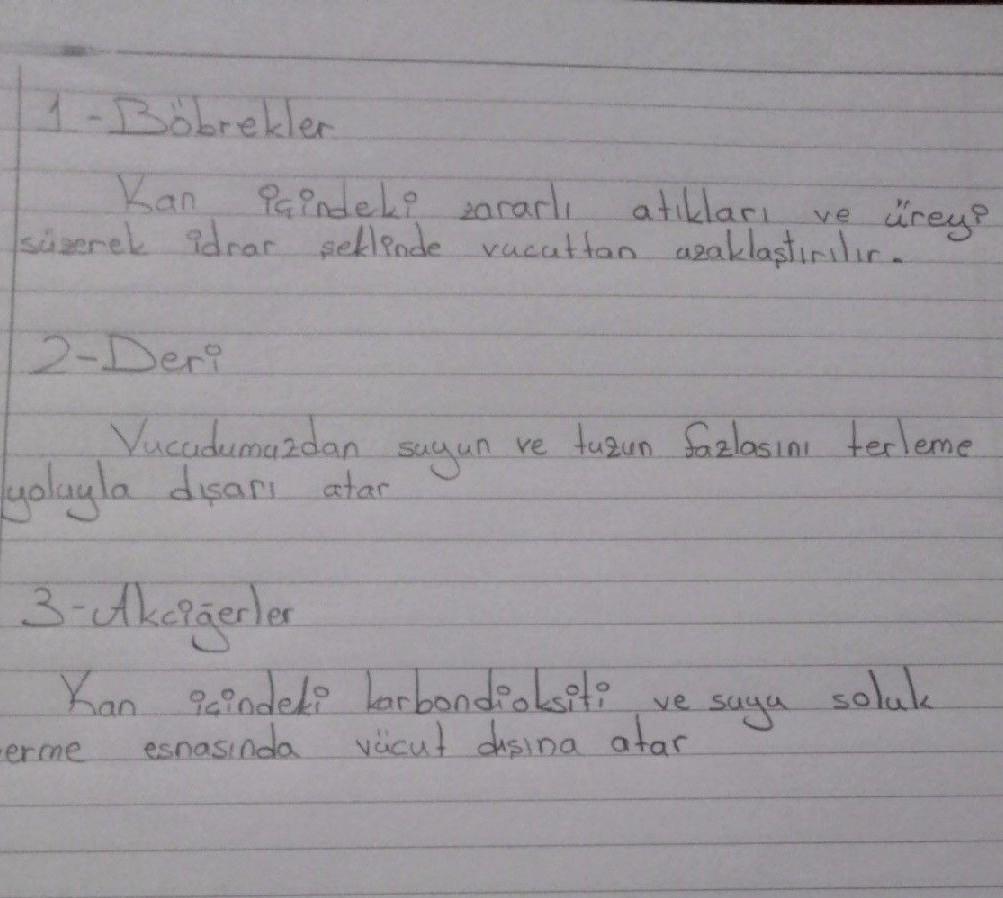 1-Böbrekler
Kan içindeki zararlı atıkları ve üreyi
süzerek idrar şeklinde vucuttan uzaklaştırılır.
2-Deri
Vucudumuzdan suyun ve tuzun fazlasını terleme
yoluyla dışarı atar
3-Akciğerler
Kan içindeki karbondioksiti ve suyu soluk
erme esnasında vücut dışına atar